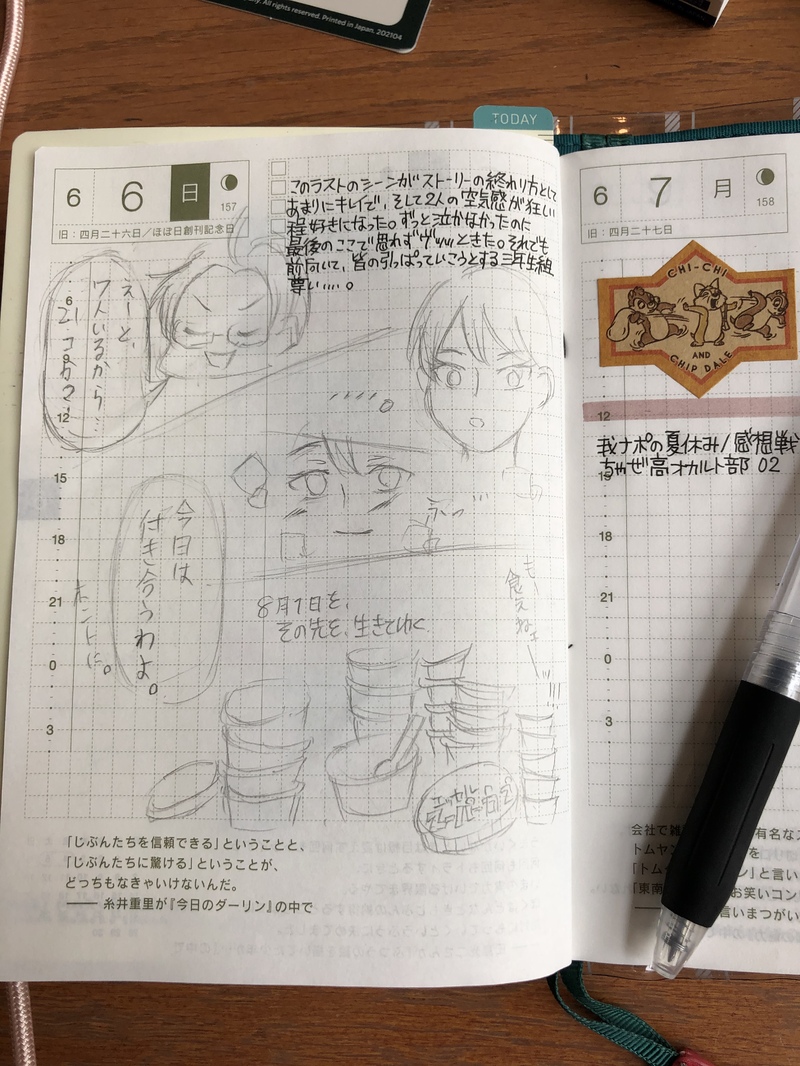 All rights reserved. Printed in Japan. 202104
TODAY
6 6 日
157
旧：四月二十六日／ほぼ日創刊記念日
このラストのシーンがストーリーの終わり方として
あまりにキレイで、そして2人の空気感が狂い
程好きになった。ずっと泣かなかったのに
最後のここで思わずヴッwときた。それでも
前向いて、皆の引っぱっていこうとする三年生組
尊い....。
えーと、
7人いるから…
21コ
6
12
15
18
21
0
3
今日は
付き合うわよ。
ホントに。
8月1日を、
その先を、生きてゆく
もー
食えねェー
「じぶんたちを信頼できる」ということと、
「じぶんたちに驚ける」ということが、
どっちもなきゃいけないんだ。
―― 糸井重里が『今日のダーリン』の中で
6 7 月
158
旧：四月二十七日
CHI-CHI
AND
CHIP DALE
12
我ナポの夏休み/感想戦
ちゃぜ高オカルト部 02
15
18
21
0
3
会社で雑
有名なス
トムヤン
を
「トム
ン」と言い
「東南
お笑いコン
言いまつがい